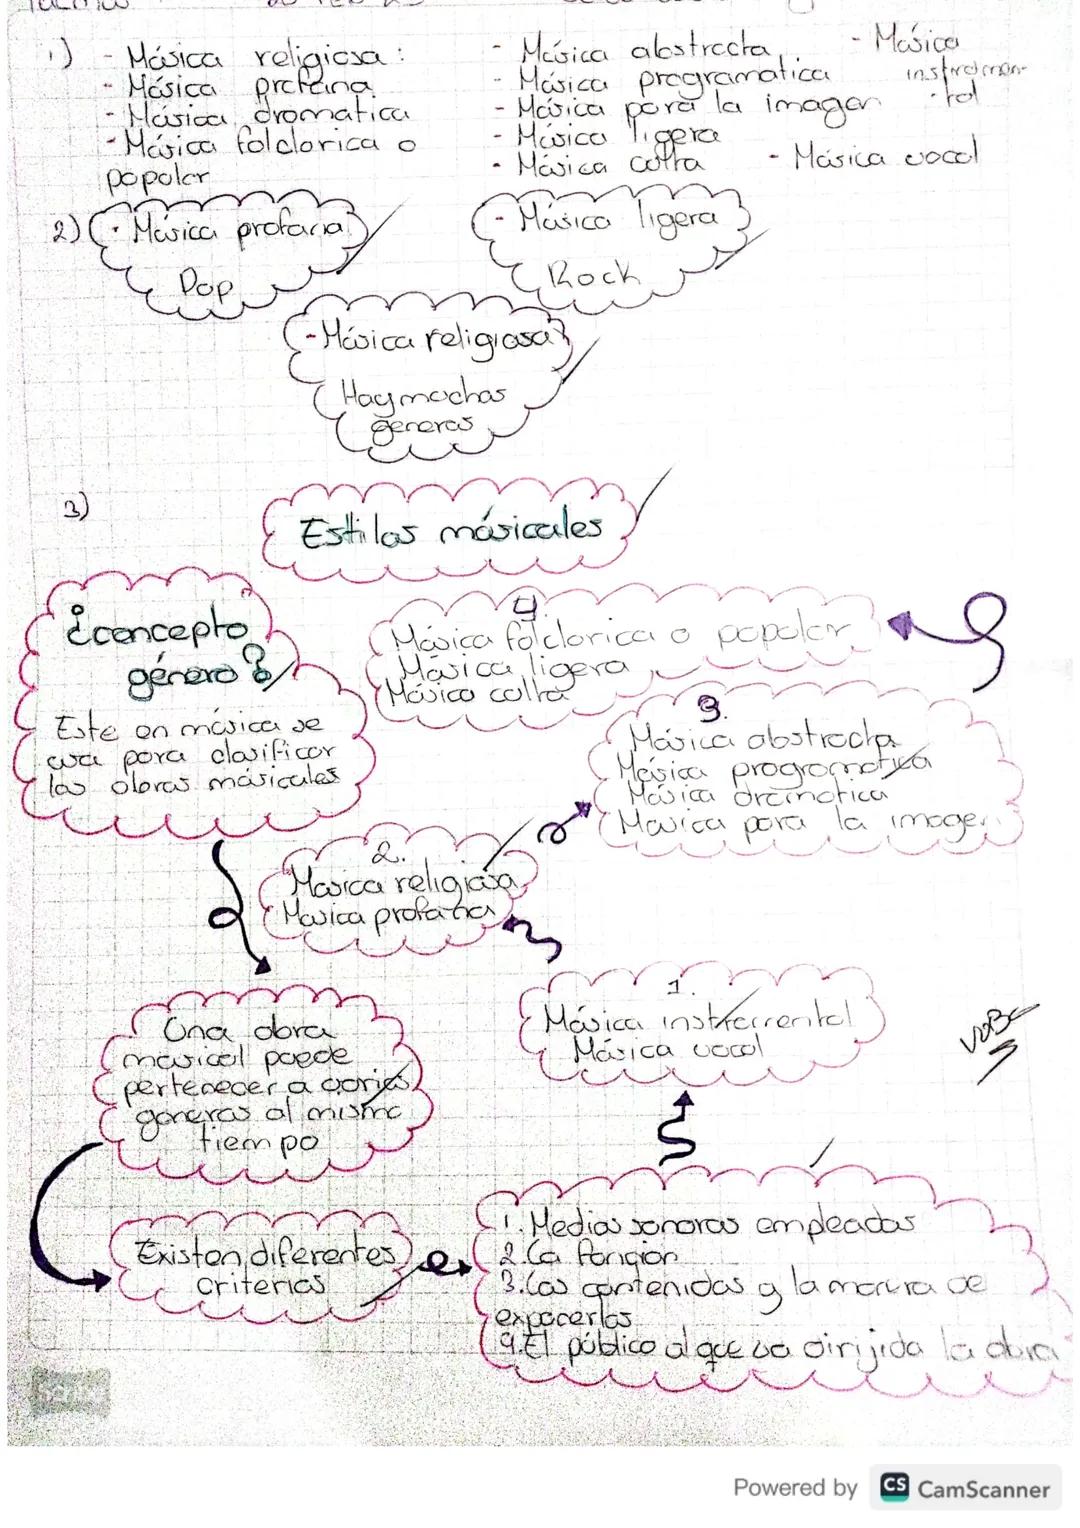 1) - Música religiosa :
- Música profana
- Música dramatica
- Música folclorica o
popular
- Música abstracta
- Música programatica
- Música para la imagen
- Música ligera
- Música culta
- Música
instrumen-
tal
- Música vocal
2) - Música profana
Pop
- Música ligera
Rock
- Música religiosa
Hay muchos
generos
3)
Estilos músicales
¿concepto
género?
Este en música se
usa para clasificar
las obras músicales
4.
Música folclorica o popular
Música ligera
Música culta
3.
Música abstracta
Música programatica
Música dramatica
Música para la imagen
2.
Musica religiosa
Musica profana
1.
Música instrumental
Música vocal
Una obra
musical puede
pertenecer a varios
generos al mismo
tiempo
Existen diferentes
criterios
1. Medios sonoros empleados
2. La función
3. Los contenidos y la manera de
exponerlos
4. El público al que va dirijida la obra
Powered by CS CamScanner